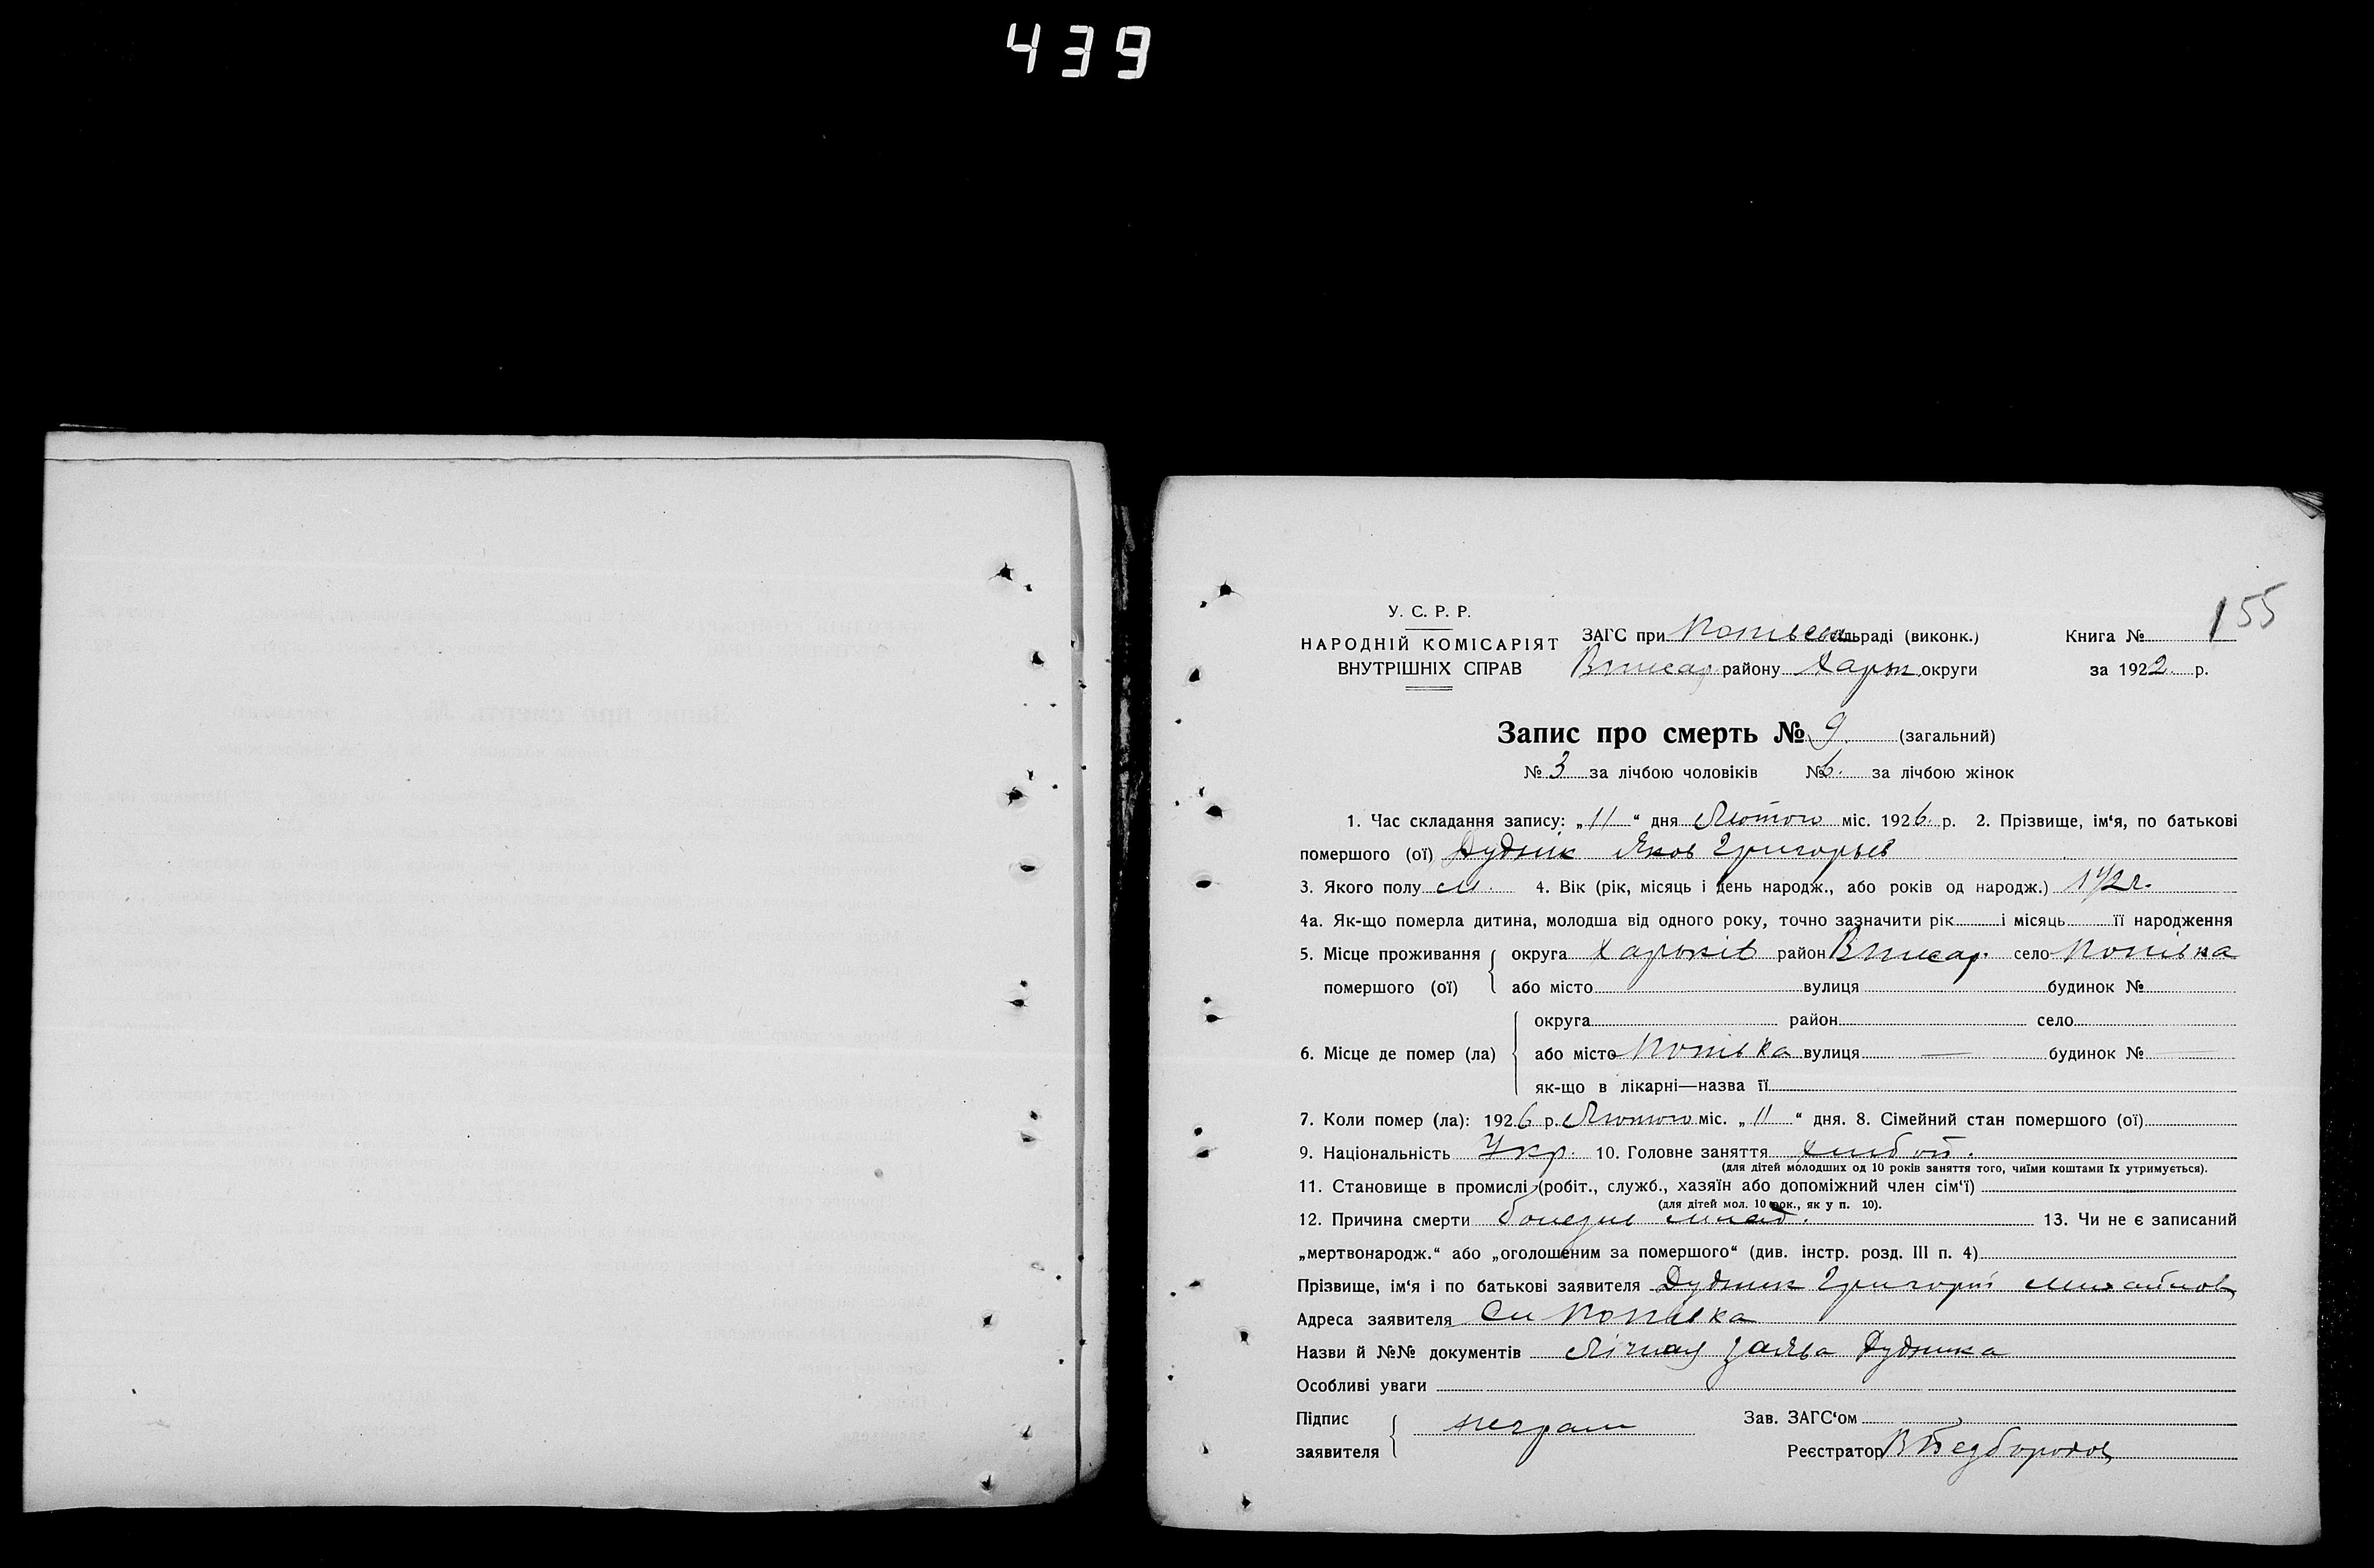 439
155
У. С. Р. Р.
НАРОДНІЙ КОМІСАРІЯТ
ВНУТРІШНІХ СПРАВ
ЗАГС при сільраді (виконк.)
району Харк. округи
Книга №
за 1922 р.
Запис про смерть № 9 (загальний)
№ 3 за лічбою чоловіків № 6. за лічбою жінок
1. Час складання запису: „11“ дня Лютого міс. 1926 р. 2. Прізвище, ім‘я, по батькові
помершого (ої) Дуднік Яков Григорьев
3. Якого полу м. 4. Вік (рік, місяць і день народж., або років од народж.) 1 1/2 г.
4а. Як-що померла дитина, молодша від одного року, точно зазначити рік і місяць її народження
5. Місце проживання помершого (ої) округа Харьків район село Копівка
або місто вулиця будинок №
6. Місце де помер (ла) округа район село
або місто Копівка вулиця — будинок № —
як-що в лікарні—назва її
7. Коли помер (ла): 1926 р. Лютого міс. „11“ дня. 8. Сімейний стан помершого (ої)
9. Національність Укр. 10. Головне заняття Хлібоп.
(для дітей молодших од 10 років заняття того, чиїми коштами їх утримується).
11. Становище в промислі (робіт., служб., хазяїн або допоміжний член сім‘ї)
(для дітей мол. 10 рок., як у п. 10).
12. Причина смерти 13. Чи не є записаний
„мертвонародж.“ або „оголошеним за помершого“ (див. інстр. розд. III п. 4)
Прізвище, ім‘я і по батькові заявителя Дудник Григорий Михайлов
Адреса заявителя Копівка
Назви й №№ документів заява Дудника
Особливі уваги
Підпис заявителя неграм
Зав. ЗАГС‘ом
Реєстратор